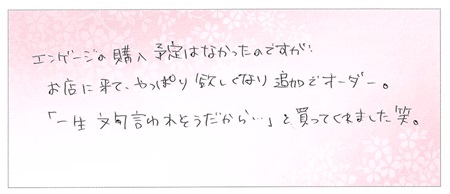 エンゲージの購入予定はなかったのですが
お店に来て、やっぱり欲しくなり追加でオーダー。
「一生文句言われそうだから…」と買ってくれました笑。